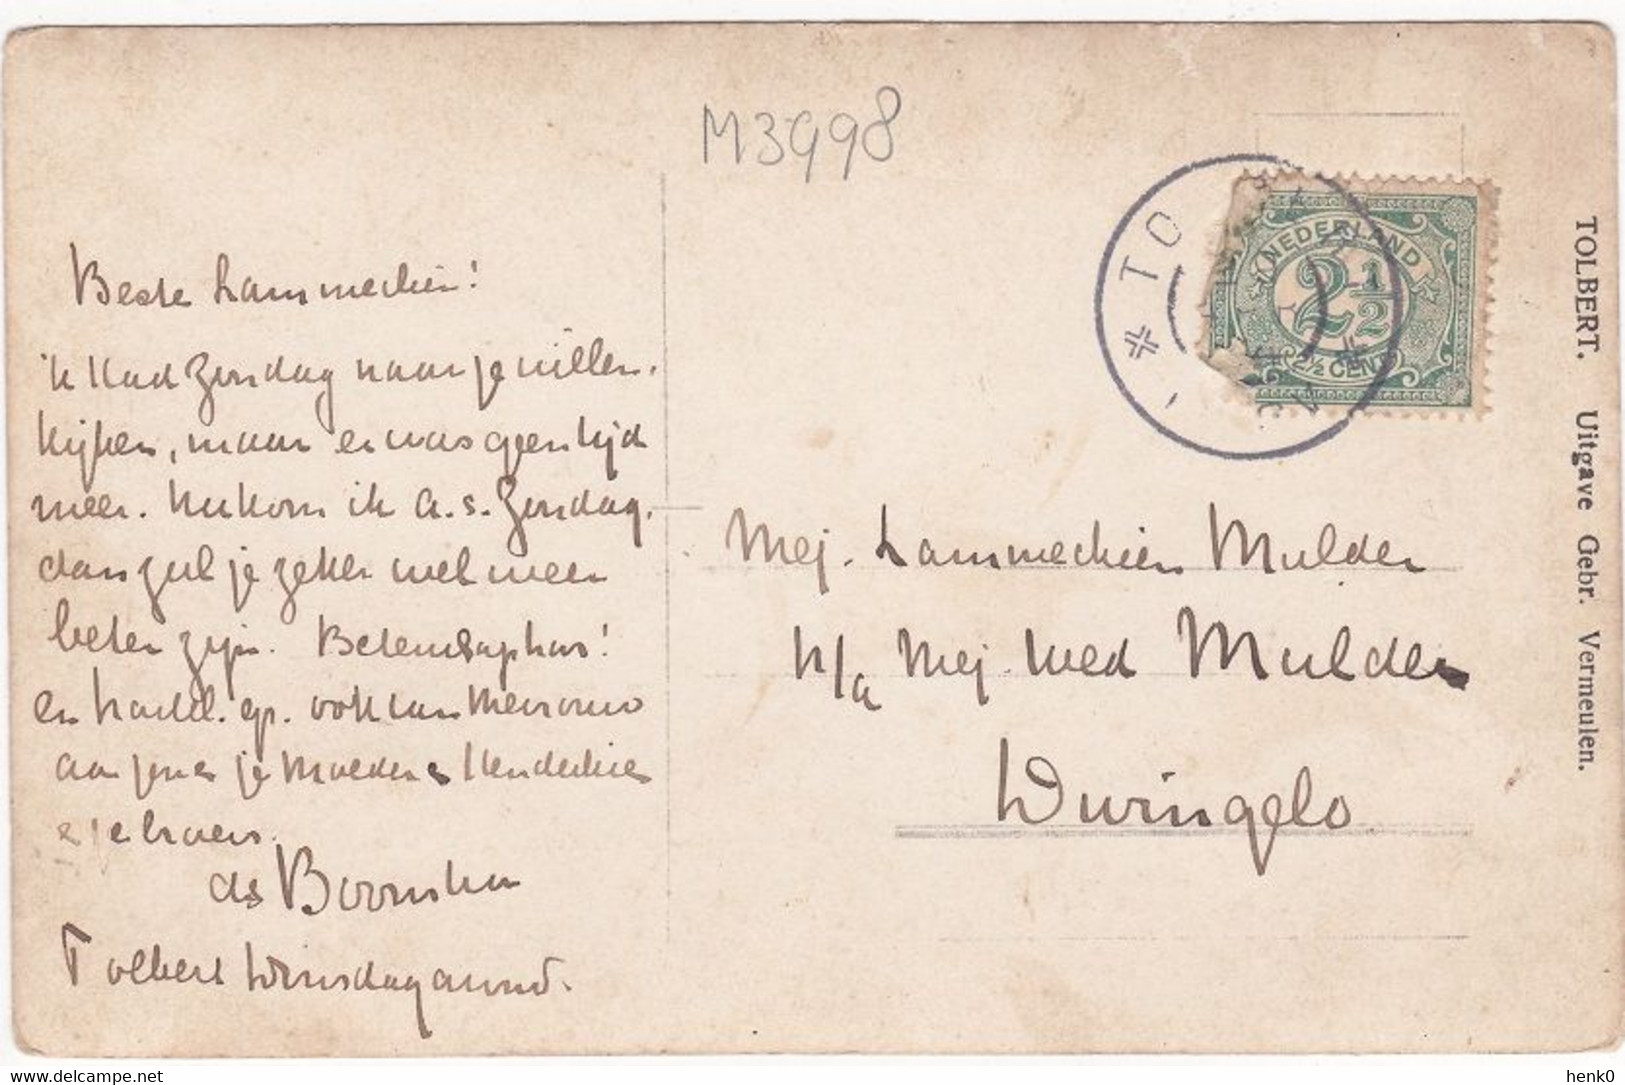 M3998
Beste Lammechien!
ik had Zondag naar je willen
kijken, maar er was geen tijd
meer. Nu kom ik a.s. Zondag,
dan zul je zeker wel weer
beter zijn. Beterschap hoor!
en hartel. gr. ook van Mevrouw
aan jou en je Moeder en Hendrikien
ds Boonstra
Tolbert Woensdagavond.
Mej. Lammechien Mulder
p/a Mej. Wed Mulder
Dwingelo
NEDERLAND
2 1/2
2 1/2 CENT
TO
TOLBERT. Uitgave Gebr. Vermeulen.
delcampe.net
henk0